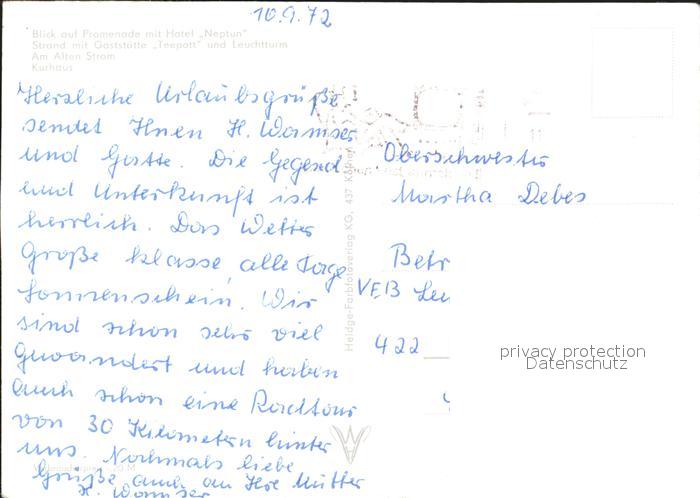 10.9.72
Blick auf Promenade mit Hotel „Neptun"
Strand mit Gaststätte „Teepott" und Leuchtturm
Am Alten Strom
Kurhaus
Herzliche Urlaubsgrüße
sendet Ihnen H. Wamser
und Gatte. Die Gegend
und Unterkunft ist
herrlich. Das Wetter
Große klasse, alle Tage
Sonnenschein. Wir
sind schon sehr viel
Gewandert und haben
auch schon eine Radtour
von 30 Kilometern hinter
uns. Nochmals liebe
Grüße auch an Ihre Mutter
H. Wamser
Heldge-Farbfotoverlag KG, 437 Köthen
Oberschwester
Martha Debes
Betr
VEB Leu
422
privacy protection
Datenschutz